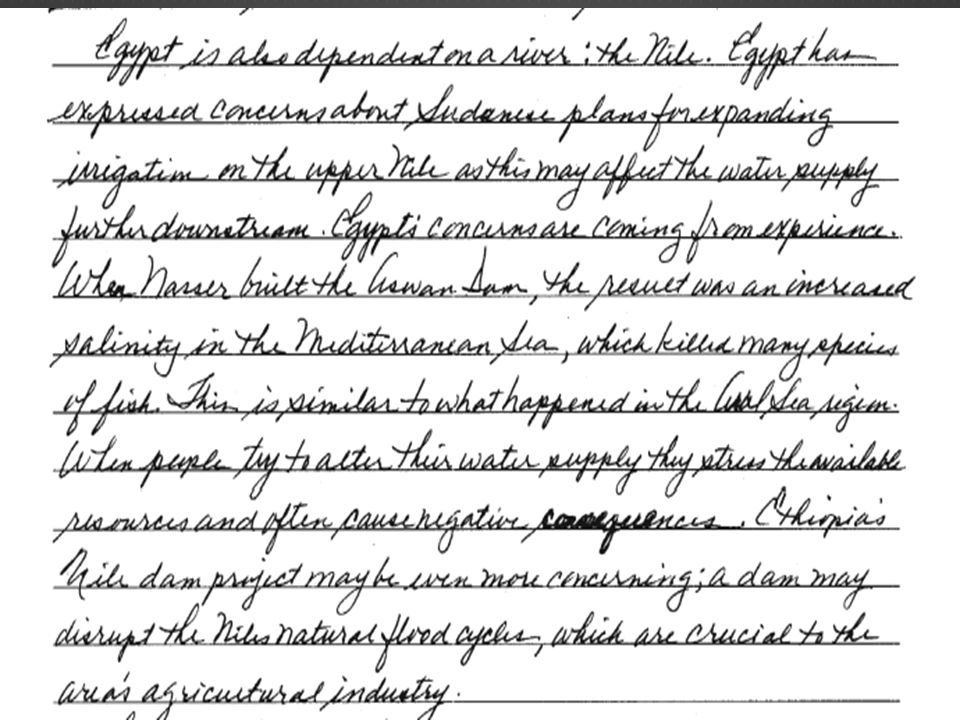 Egypt is also dependent on a river: the Nile. Egypt has
expressed concerns about Sudanese plans for expanding
irrigation on the upper Nile as this may affect the water supply
further downstream. Egypt's concerns are coming from experience.
When Nasser built the Aswan Dam, the result was an increased
salinity in the Mediterranean Sea, which killed many species
of fish. This is similar to what happened in the Aral Sea region.
When people try to alter their water supply they stress the available
resources and often cause negative consequences. Ethiopia's
Nile dam project may be even more concerning; a dam may
disrupt the Niles natural flood cycles, which are crucial to the
area's agricultural industry.